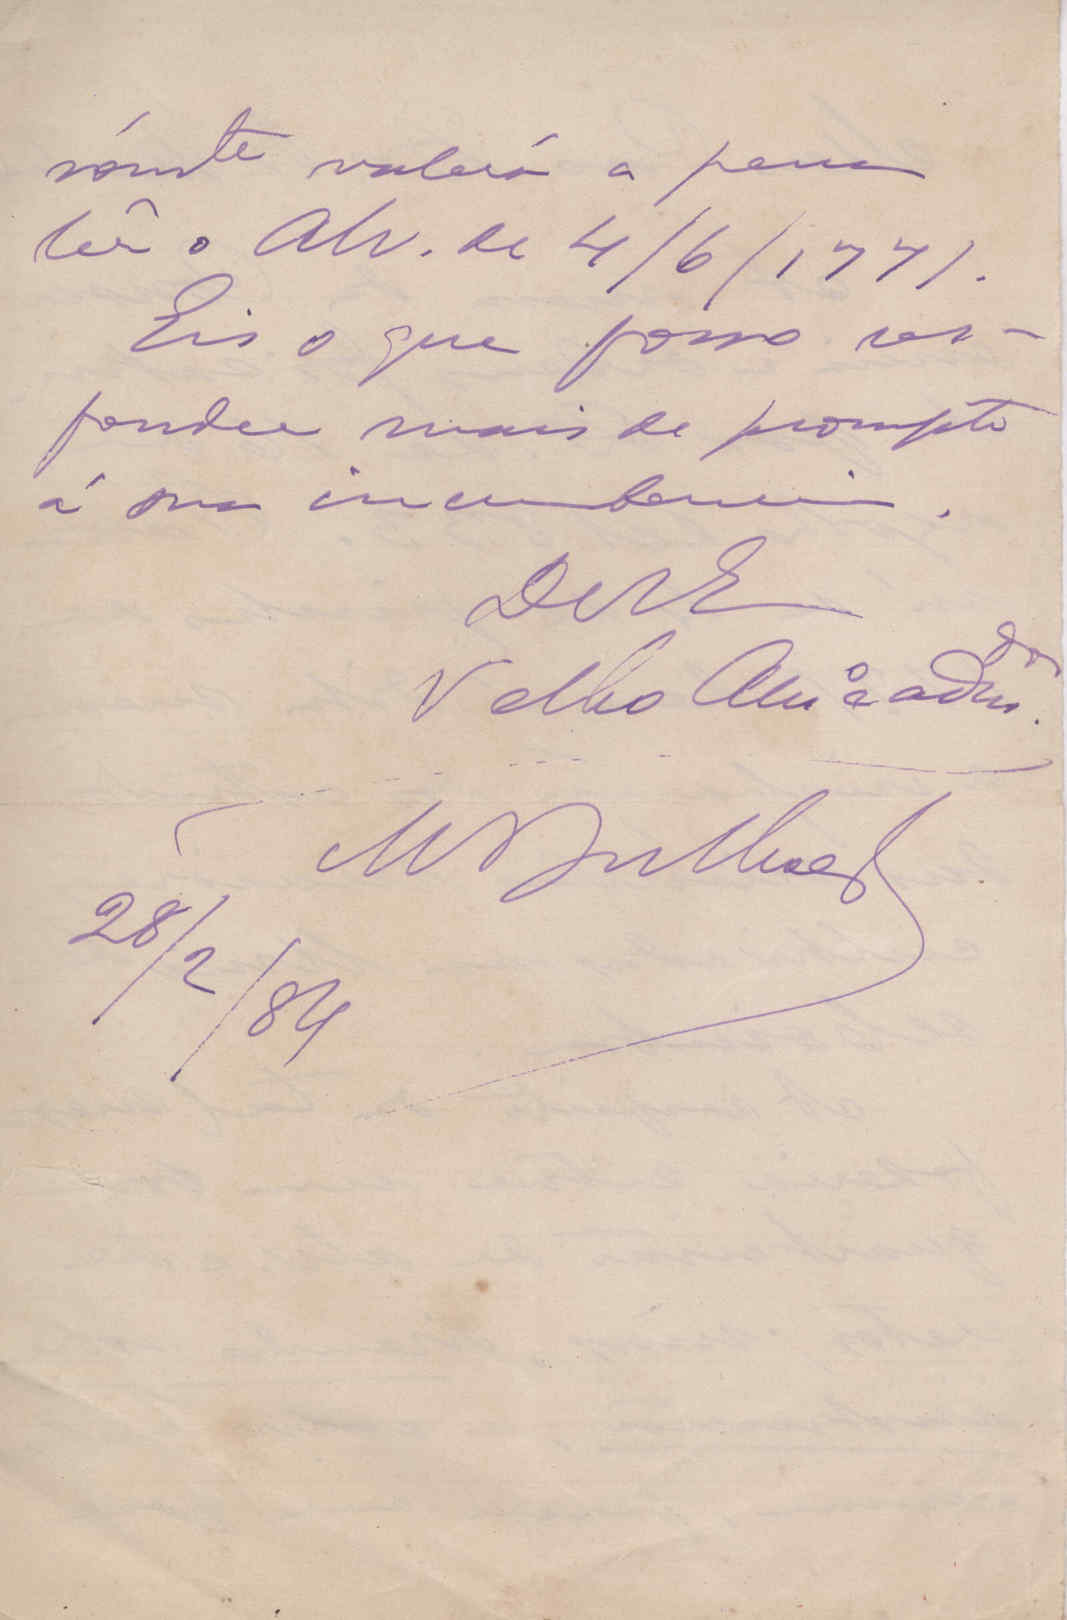 sómte valerá a pena
lêr o Alv. de 4/6/1771.
Eis o que posso res-
ponder mais de prompto
á sua incumbencia.
De V E
Velho Amo e admdor.
28/2/84